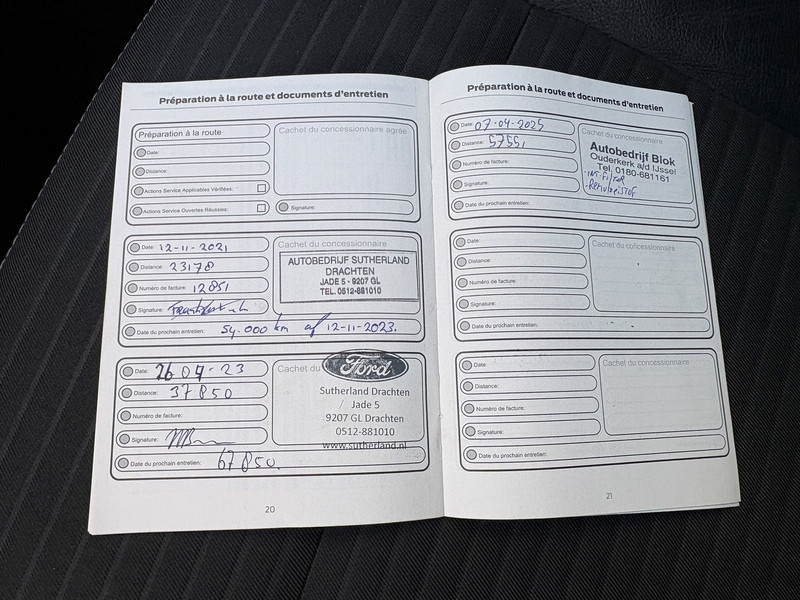 Préparation à la route et documents d'entretien
Préparation à la route
Cachet du concessionnaire agréé
Date:
Distance:
Actions Service Applicables Vérifiées:
Actions Service Ouvertes Réussies:
Signature:
Date: 12-11-2021
Cachet du concessionnaire
Distance: 23178
Numéro de facture: 12851
Signature:
AUTOBEDRIJF SUTHERLAND
DRACHTEN
JADE 5 - 9207 GL
TEL. 0512-881010
Date du prochain entretien: 54.000 km of 12-11-2023.
Date: 26 04-23
Cachet du
Ford
Distance: 37850
Numéro de facture:
Signature:
Sutherland Drachten
Jade 5
9207 GL Drachten
0512-881010
www.sutherland.nl
Date du prochain entretien: 67850.
20
Préparation à la route et documents d'entretien
Date: 07-04-2025
Cachet du concessionnaire
Distance:
Numéro de facture:
Signature:
Autobedrijf Blok
Ouderkerk a/d IJssel
Tel. 0180-681161
- INT. FILTER
- REMVLOEISTOF
Date du prochain entretien:
Date:
Cachet du concessionnaire
Distance:
Numéro de facture:
Signature:
Date du prochain entretien:
Date:
Cachet du concessionnaire
Distance:
Numéro de facture:
Signature:
Date du prochain entretien:
21